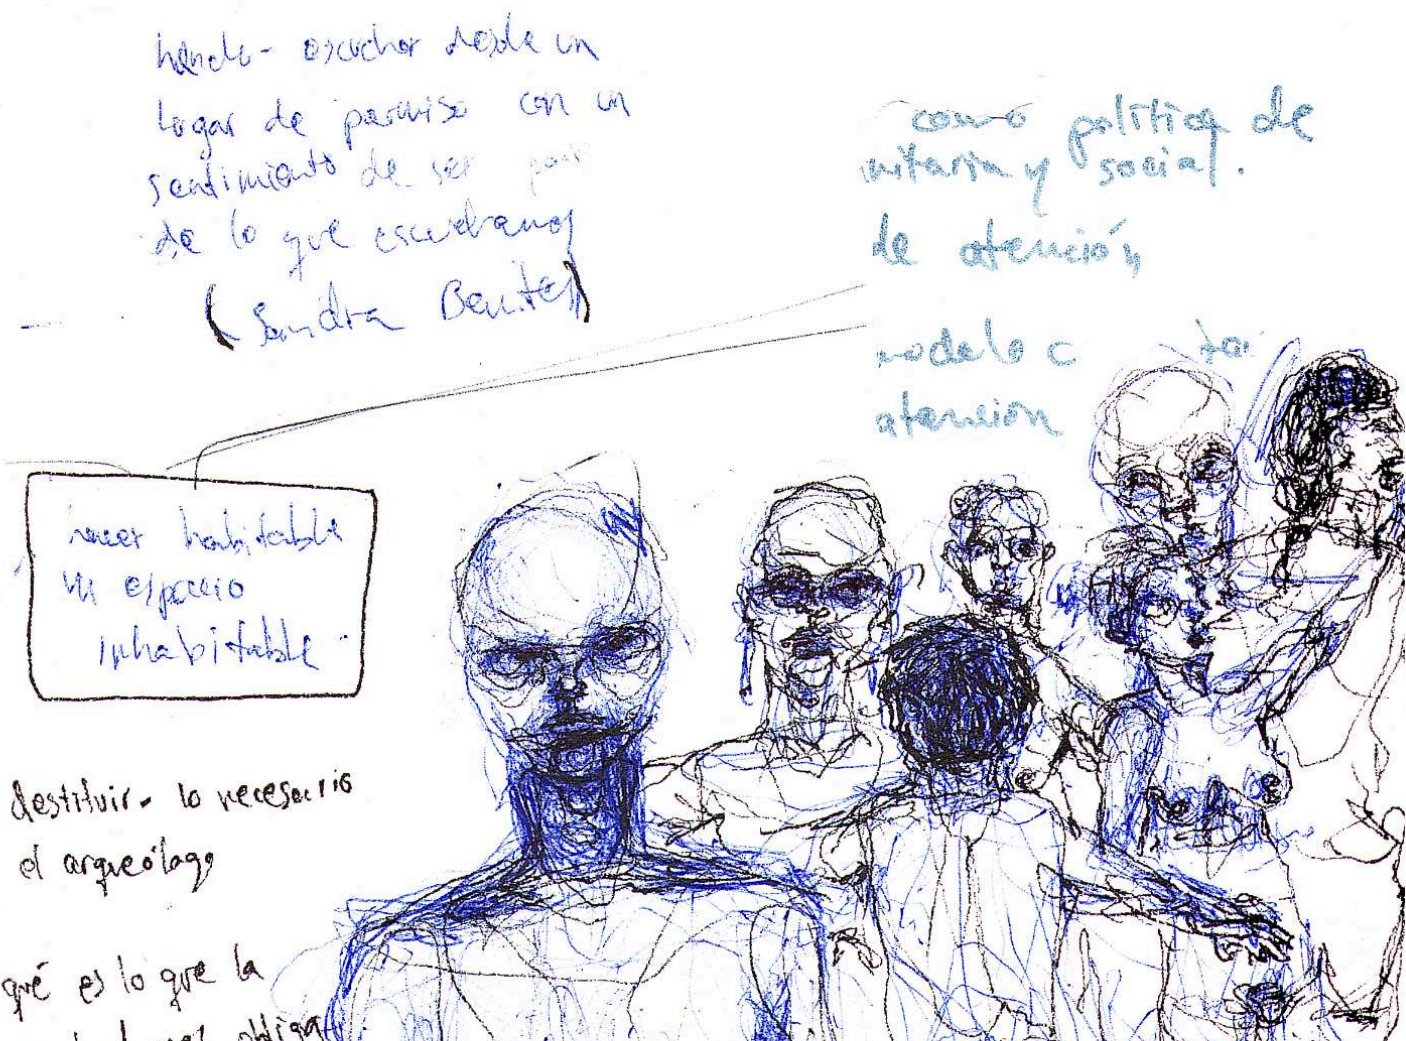 escuchar desde un
lugar de permiso con un
sentimiento de ser
de lo que escuchamos
(Sandra Benites)
como política de
nitaria y social.
de atención
modelo c
atención
hacer habitable
un espacio
inhabitable
destituir - lo necesario
el arqueólogo
qué es lo que la
obliga